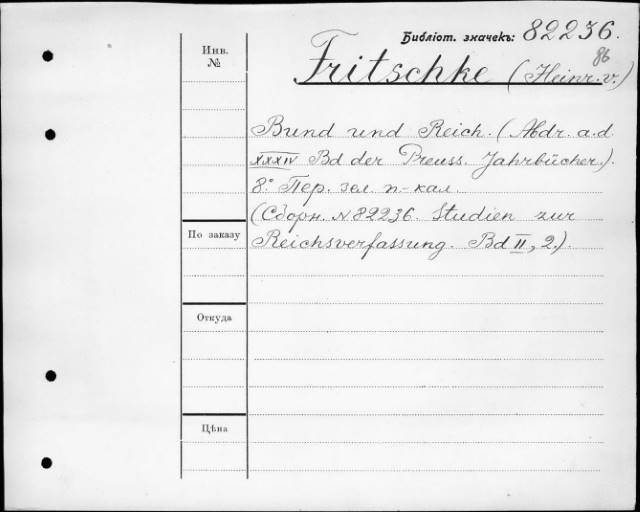 Библіот. значекъ: 82236.
86
Инв.
№
Fritschke (Heinr. v.)
Bund und Reich. (Abdr. a. d.
XXXIV Bd der Preuss. Jahrbücher.).
8.° Пер. зел. п-кал.
(Сборн. N 82236. Studien zur
По заказу
Reichsverfassung. Bd II, 2.).
Откуда
Цѣна